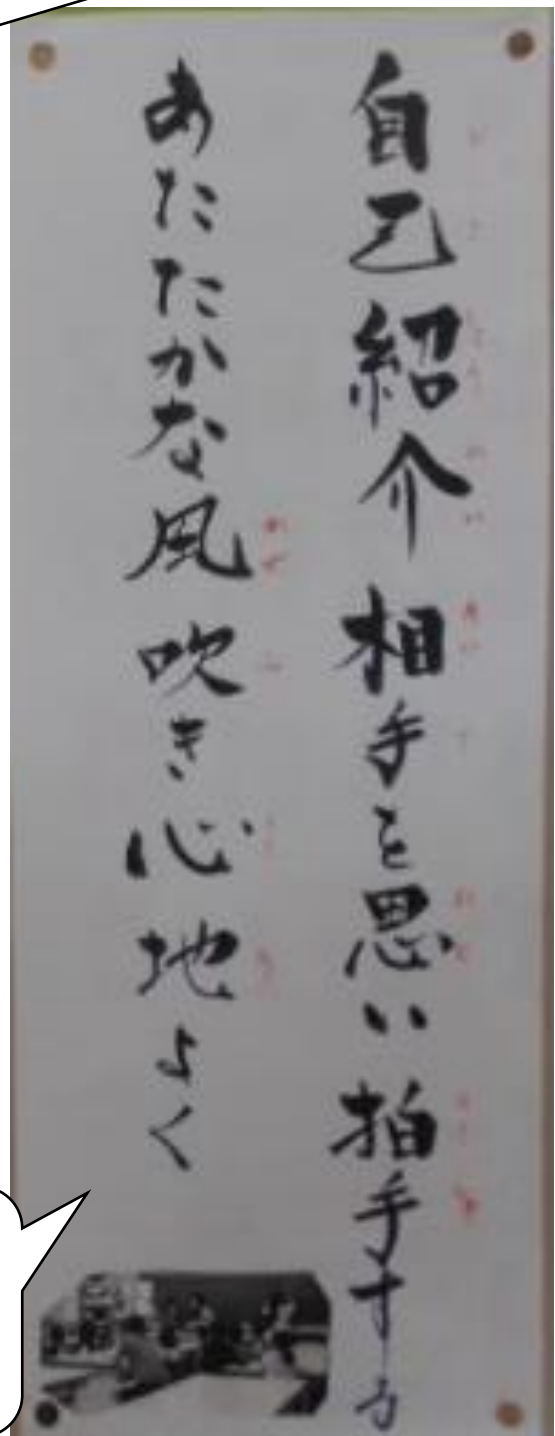 自己紹介相手を思い拍手する
あたたかな風吹き心地よく